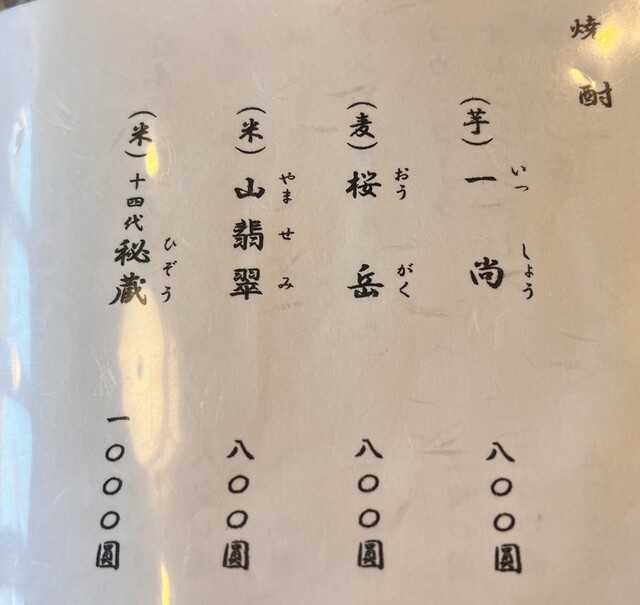 焼酎
(芋)一尚 いっしょう 八〇〇圓
(麦)桜岳 おうがく 八〇〇圓
(米)山翡翠 やませみ 八〇〇圓
(米)十四代秘蔵 ひぞう 一〇〇〇圓